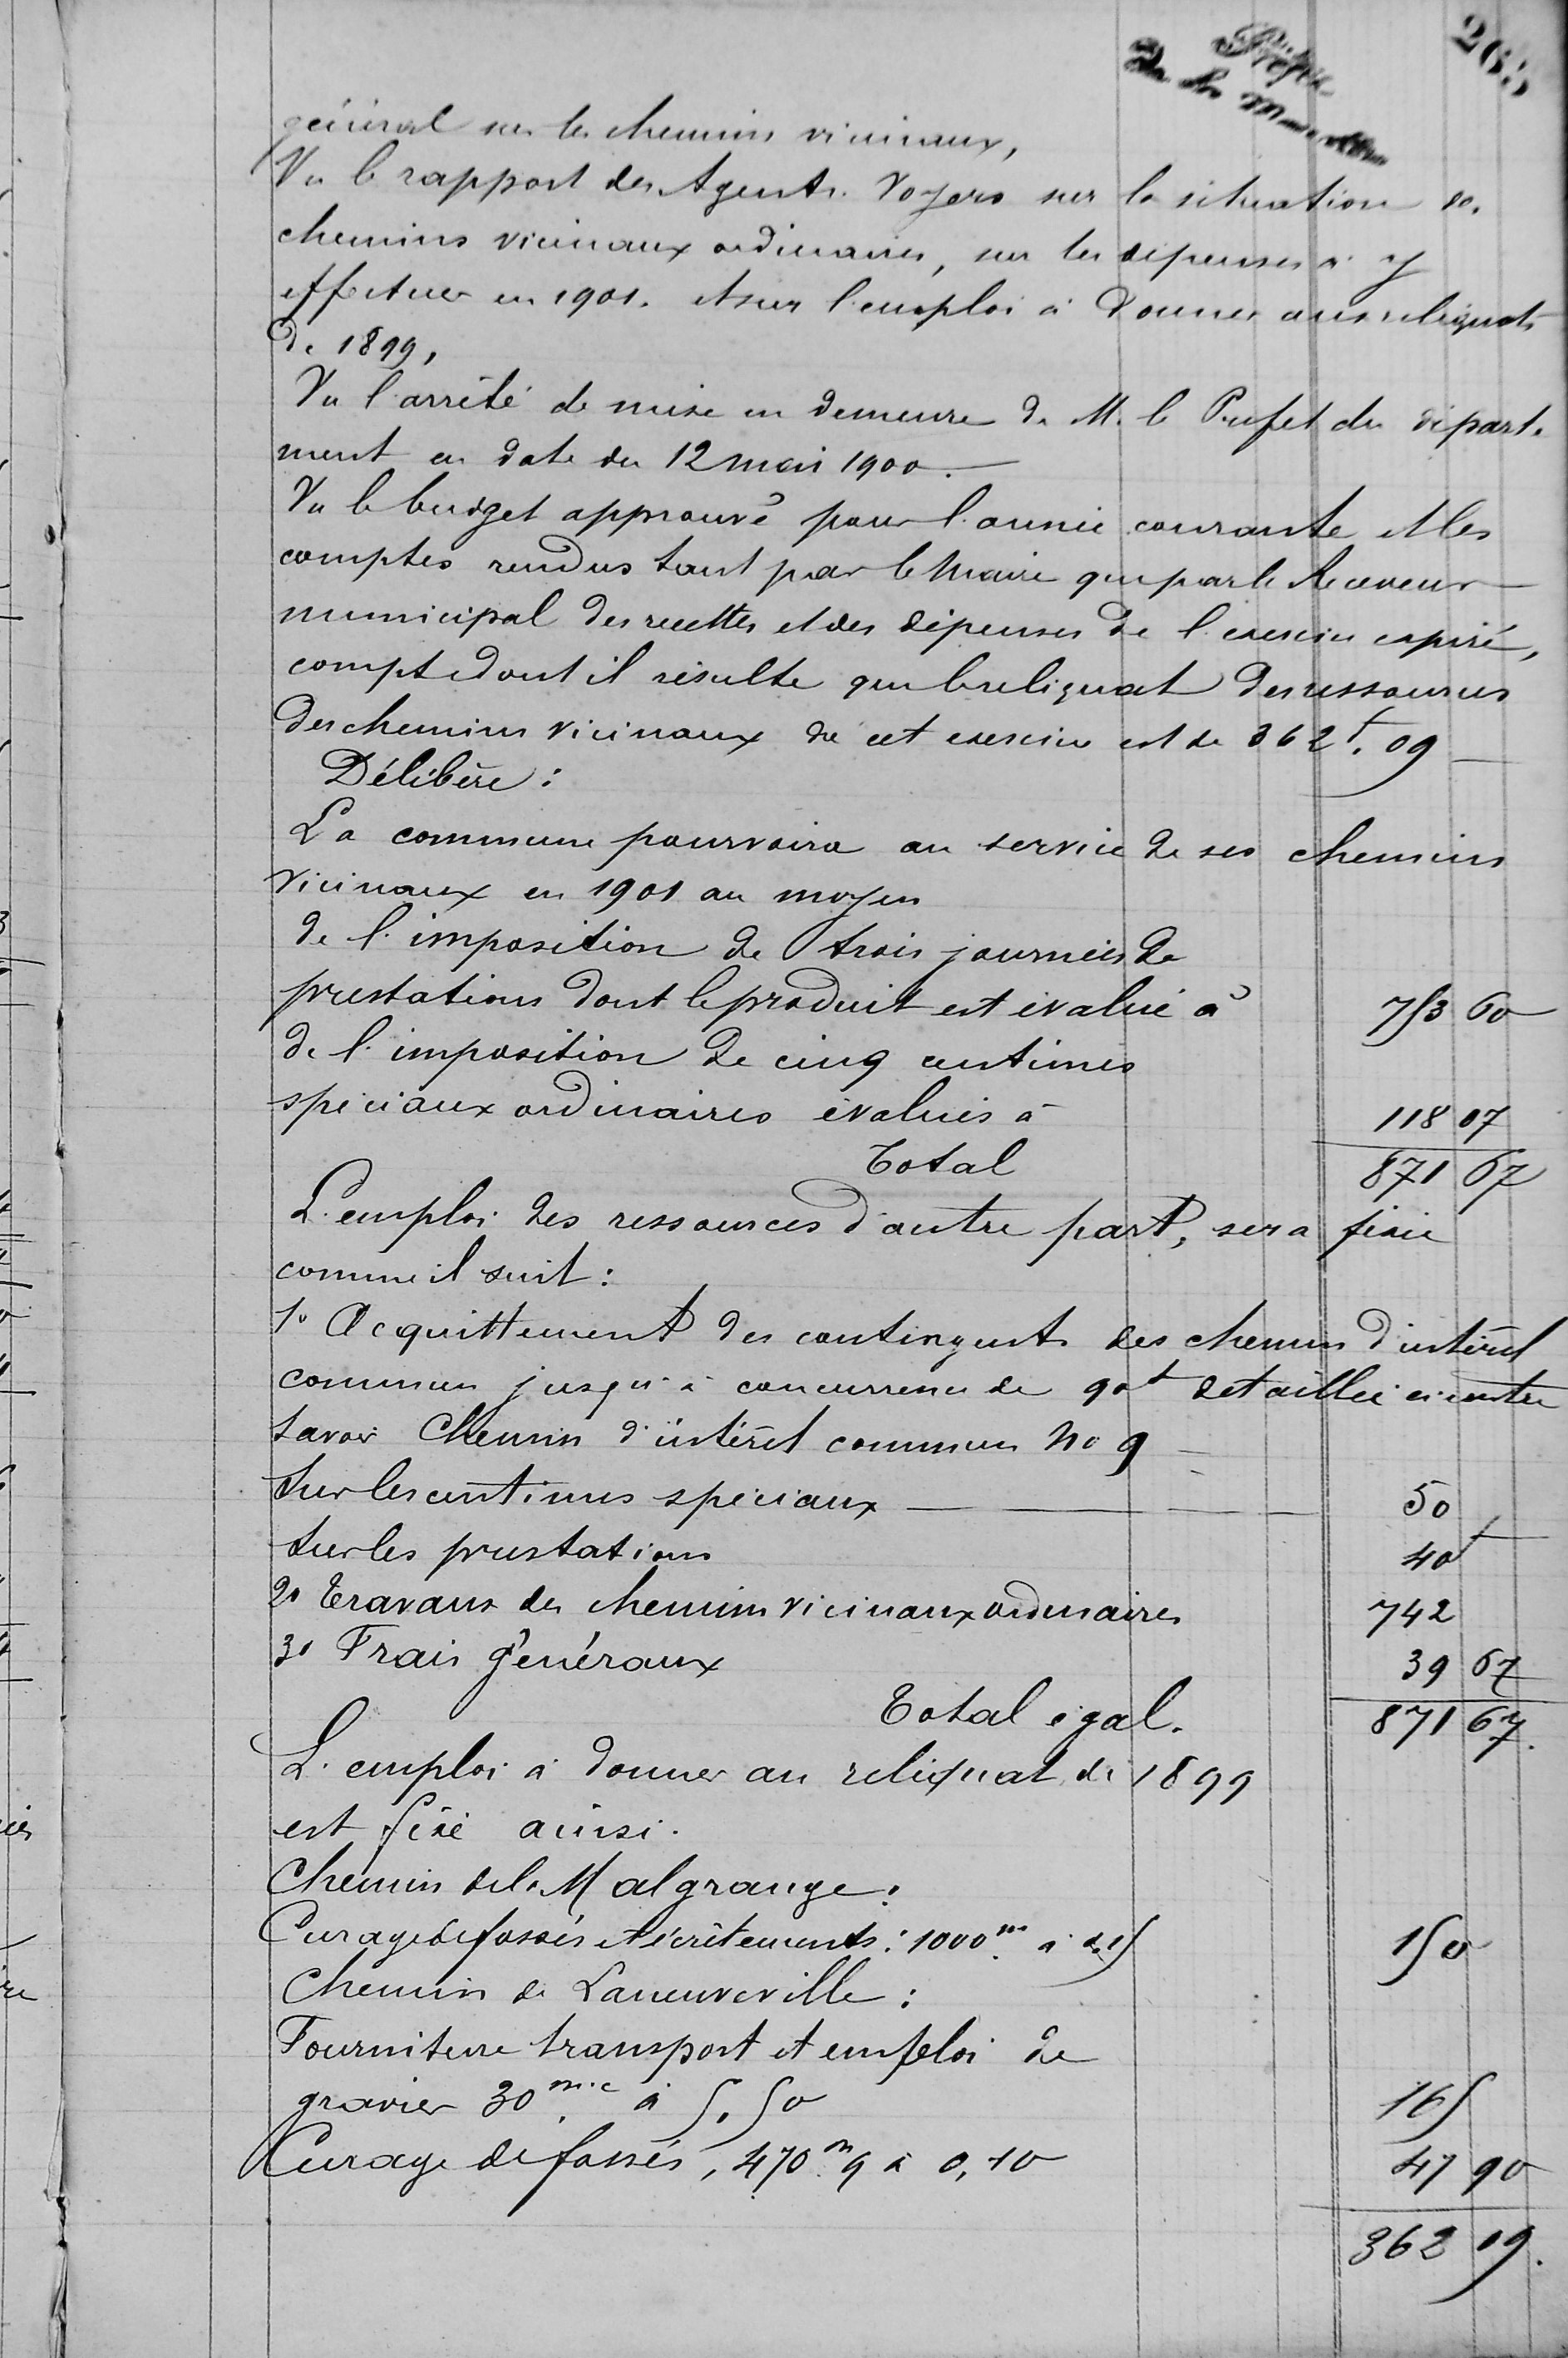 265
Préfet
de la
général sur les chemins vicinaux,
Vu le rapport des Agents Voyers sur la situation des
chemins vicinaux ordinaires, sur les dépenses à y
effectuer en 1901. et sur l'emploi à donner aux reliquats
de 1899,
Vu l'arrêté de mise en demeure de M. le Préfet du départe
ment en date du 12 mai 1900.
Vu le budget approuvé pour l'année courante et les
comptes rendus tant par le Maire que par le Receveur
municipal des recettes et des dépenses de l'exercice expiré,
compte dont il résulte que le reliquat des ressources
des chemins vicinaux de cet exercice est de 362f.09
Délibère :
La commune pourvoira au service de ses chemins
vicinaux en 1901 au moyen
de l'imposition de trois journées de
prestations dont le produit est évalué à 753 60
de l'imposition de cinq centimes
spéciaux ordinaires évalués à 118 07
Total 871 67
L'emploi des ressources d'autre part, sera fixée
comme il suit :
1o Acquittement des contingents des chemins d'intérêt
commun jusqu'à concurrence de 90f détaillée ci contre
savoir Chemin d'intérêt commun No 9
Sur les centimes spéciaux 50
Sur les prestations 40
2o Travaux des chemins vicinaux ordinaires 742
3o Frais généraux 39 67
Total égal. 871 67.
L'emploi à donner au reliquat de 1899
est fixé ainsi.
Chemin de la Malgrange :
Curage de fossés et écrêtements : 1000m. à 150
Chemin de Laneuveville :
Fourniture transport et emploi de
gravier 30 m.c à 5.50 165
Curage de fossés, 470m.9 à 0,10 47 90
362 09.